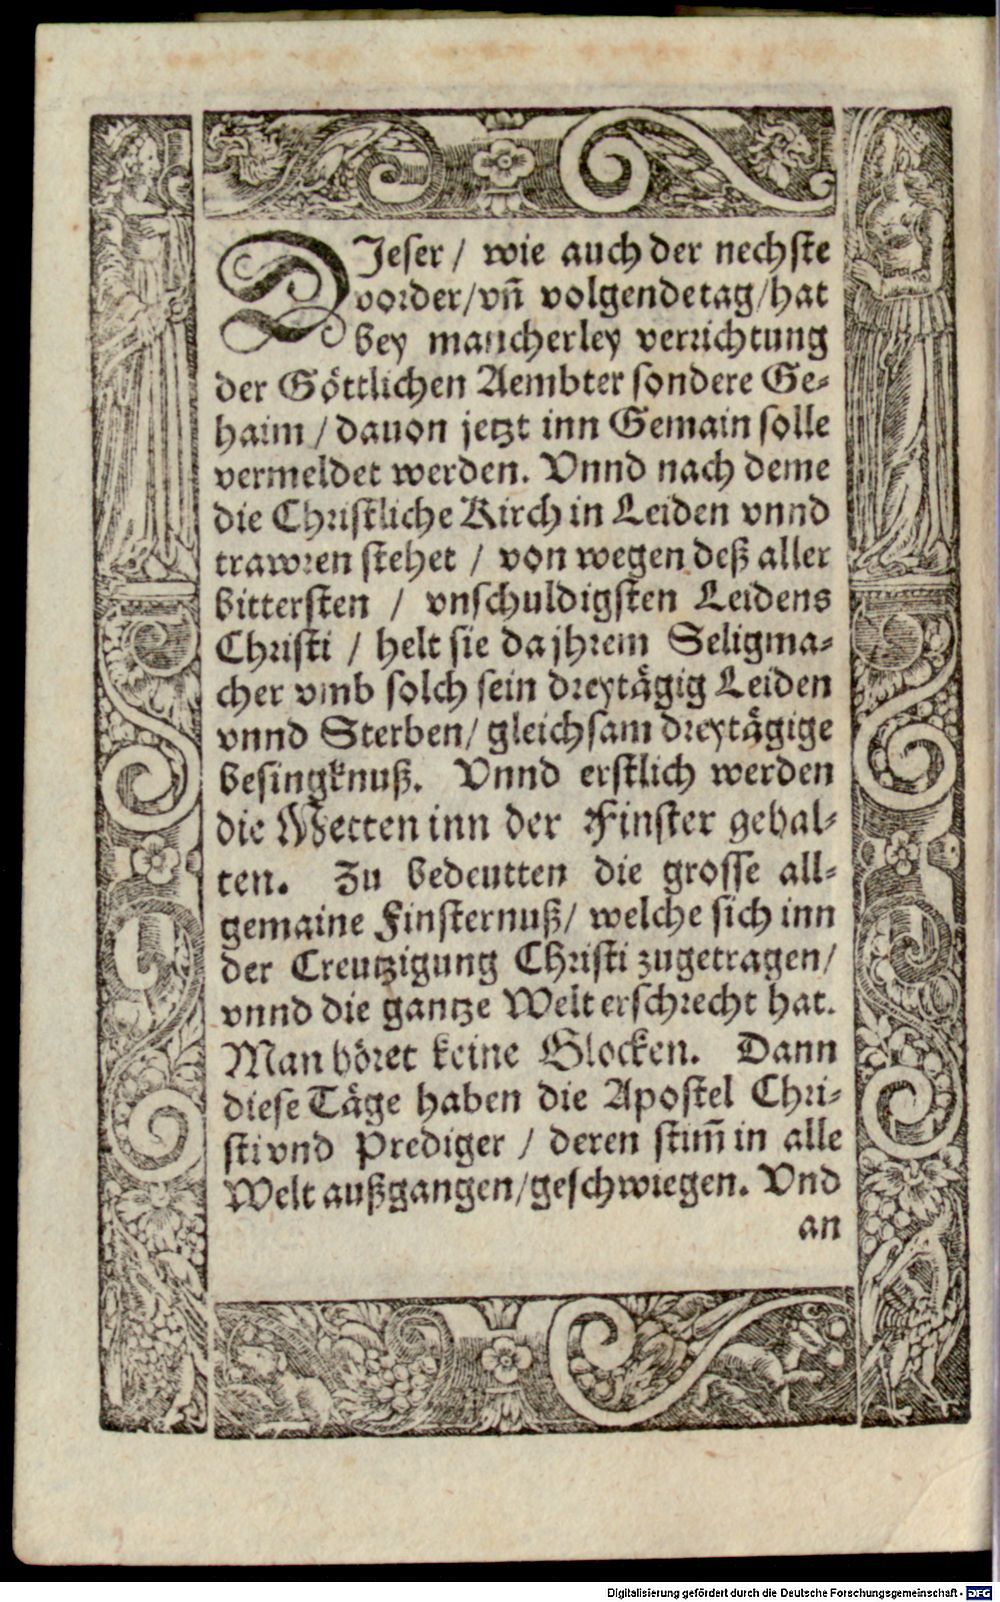 DIeser / wie auch der nechste
vorder/vñ volgende tag/hat
bey mancherley verrichtung
der Göttlichen Aembter sondere Ge-
haim / dauon jetzt inn Gemain solle
vermeldet werden. Vnnd nach deme
die Christliche Kirch in Leiden vnnd
trawren stehet / von wegen deß aller
bittersten / vnschuldigsten Leidens
Christi / helt sie da jhrem Seligma-
cher vmb solch sein dreytägig Leiden
vnnd Sterben/ gleichsam dreytägige
besingknuß. Vnnd erstlich werden
die Metten inn der Finster gehal-
ten. Zu bedeutten die grosse all-
gemaine Finsternuß/ welche sich inn
der Creutzigung Christi zugetragen/
vnnd die gantze Welt erschrecht hat.
Man höret keine Glocken. Dann
diese Täge haben die Apostel Chri-
sti vnd Prediger / deren stim̃ in alle
Welt außgangen/geschwiegen. Vnd
an
Digitalisierung gefördert durch die Deutsche Forschungsgemeinschaft - DFG